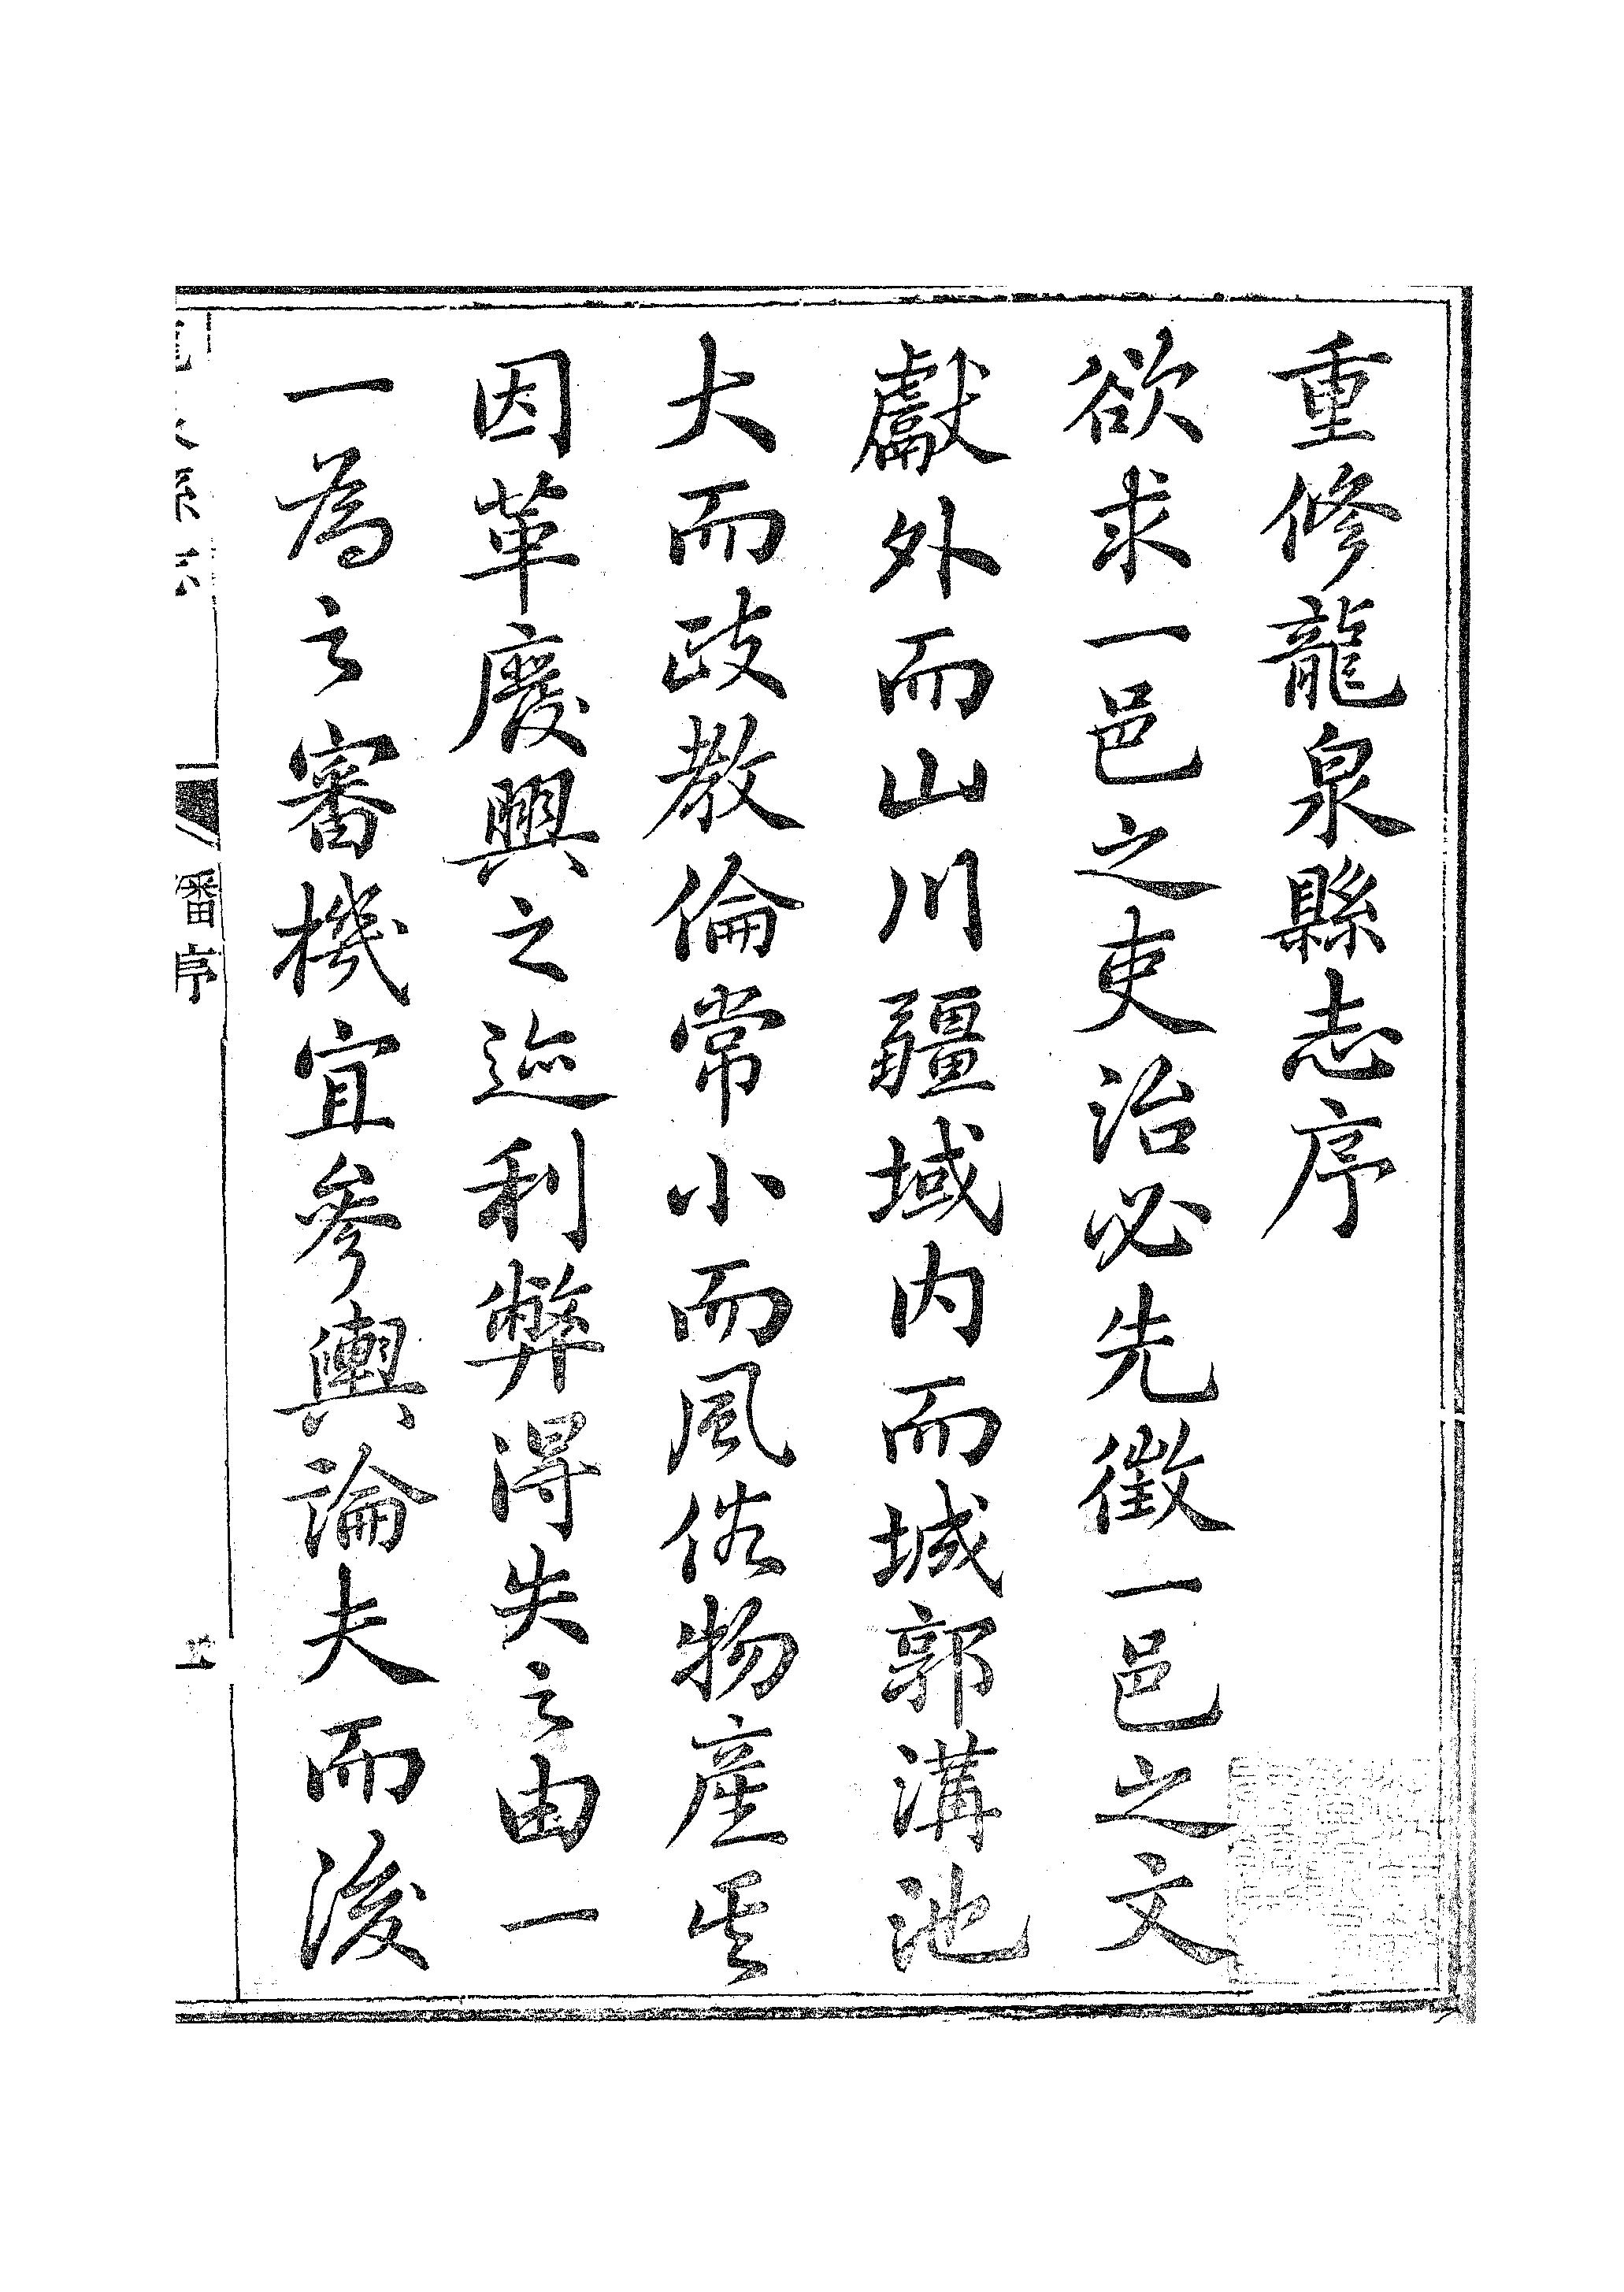 重修龍泉縣志序
欲求一邑之吏治必先徵一邑之文
獻外而山川疆域內而城郭溝池
大而政教倫常小而風俗物產其
因革廢興之迹利弊得失之由一
一為之審機宜參輿論夫而後
潘序